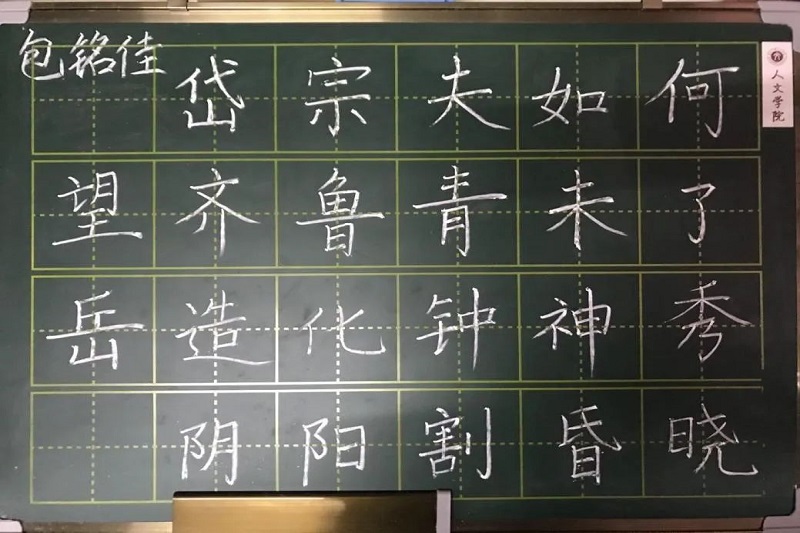 包铭佳
岱宗夫如何
望齐鲁青未了
岳造化钟神秀
阴阳割昏晓
人文学院